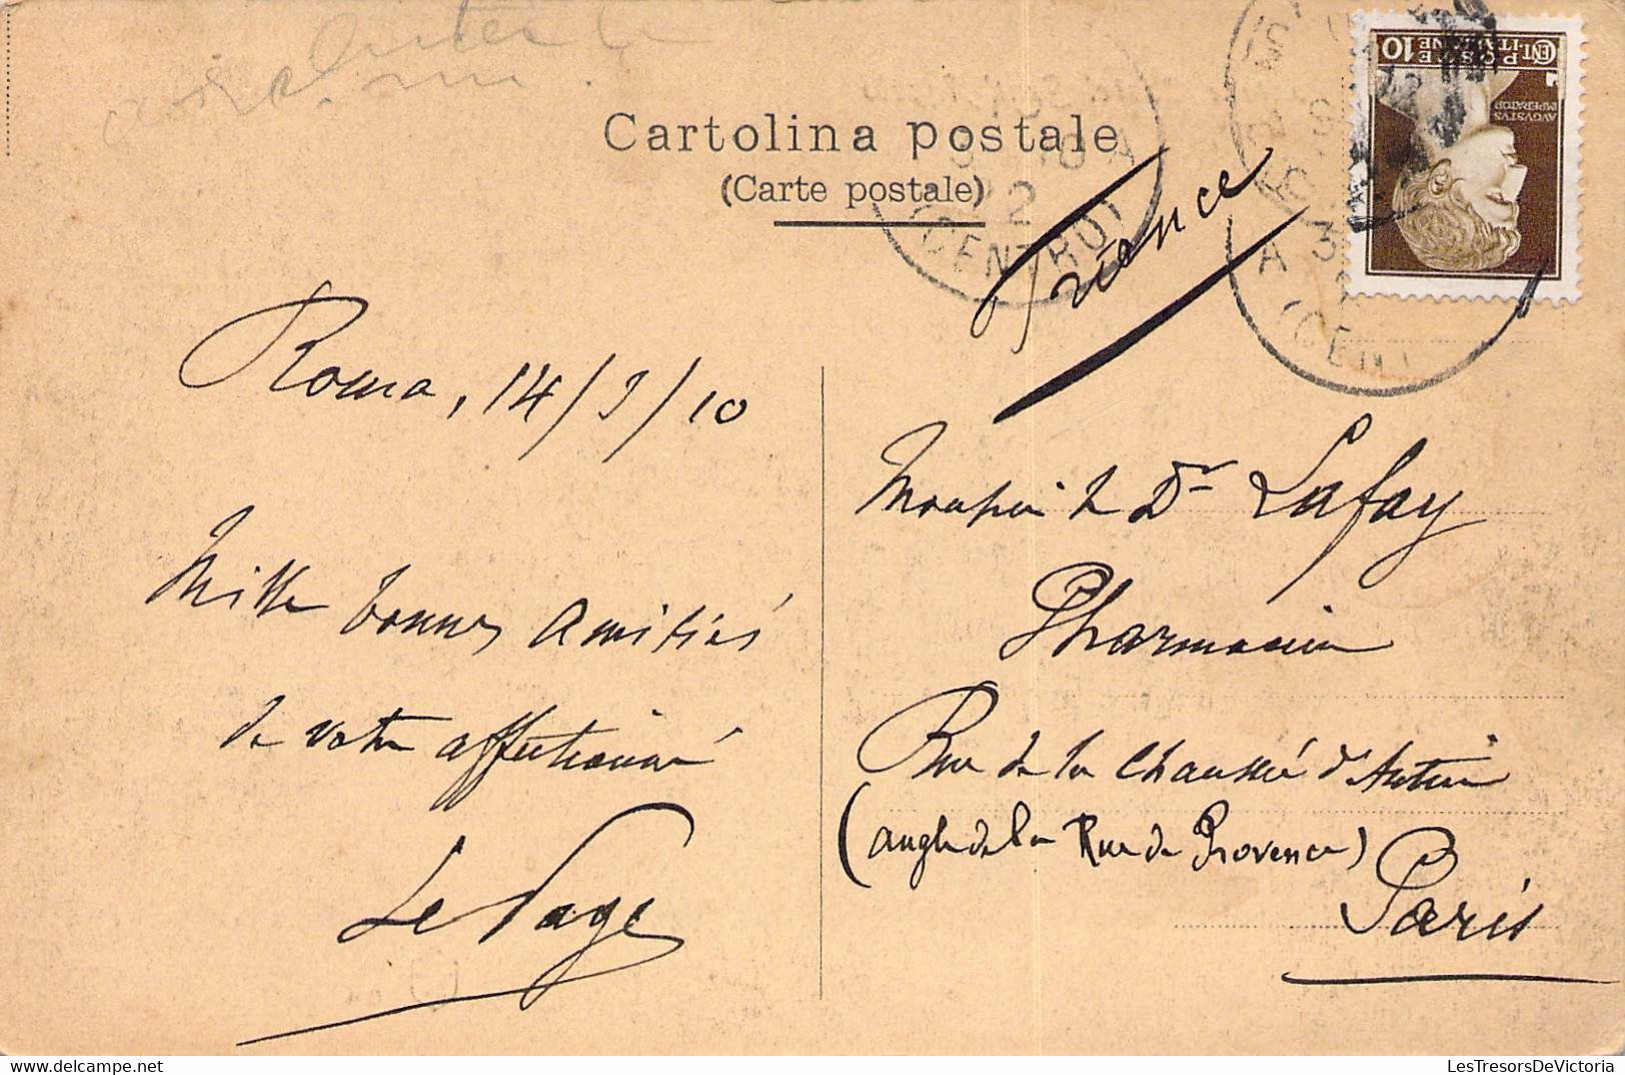 Cartolina postale
(Carte postale)
France
(CENTRO)
POSTE ITALIANE
CENT. 10
AVGVSTVS
IMPERATOR
Roma, 14/9/10
Mille bonnes amitiés
de votre affectionné
Le Page
Monsieur le Dr Lafay
Pharmacien
Rue de la Chaussée d'Antin
(angle de la Rue de Provence)
Paris
LesTresorsDeVictoria